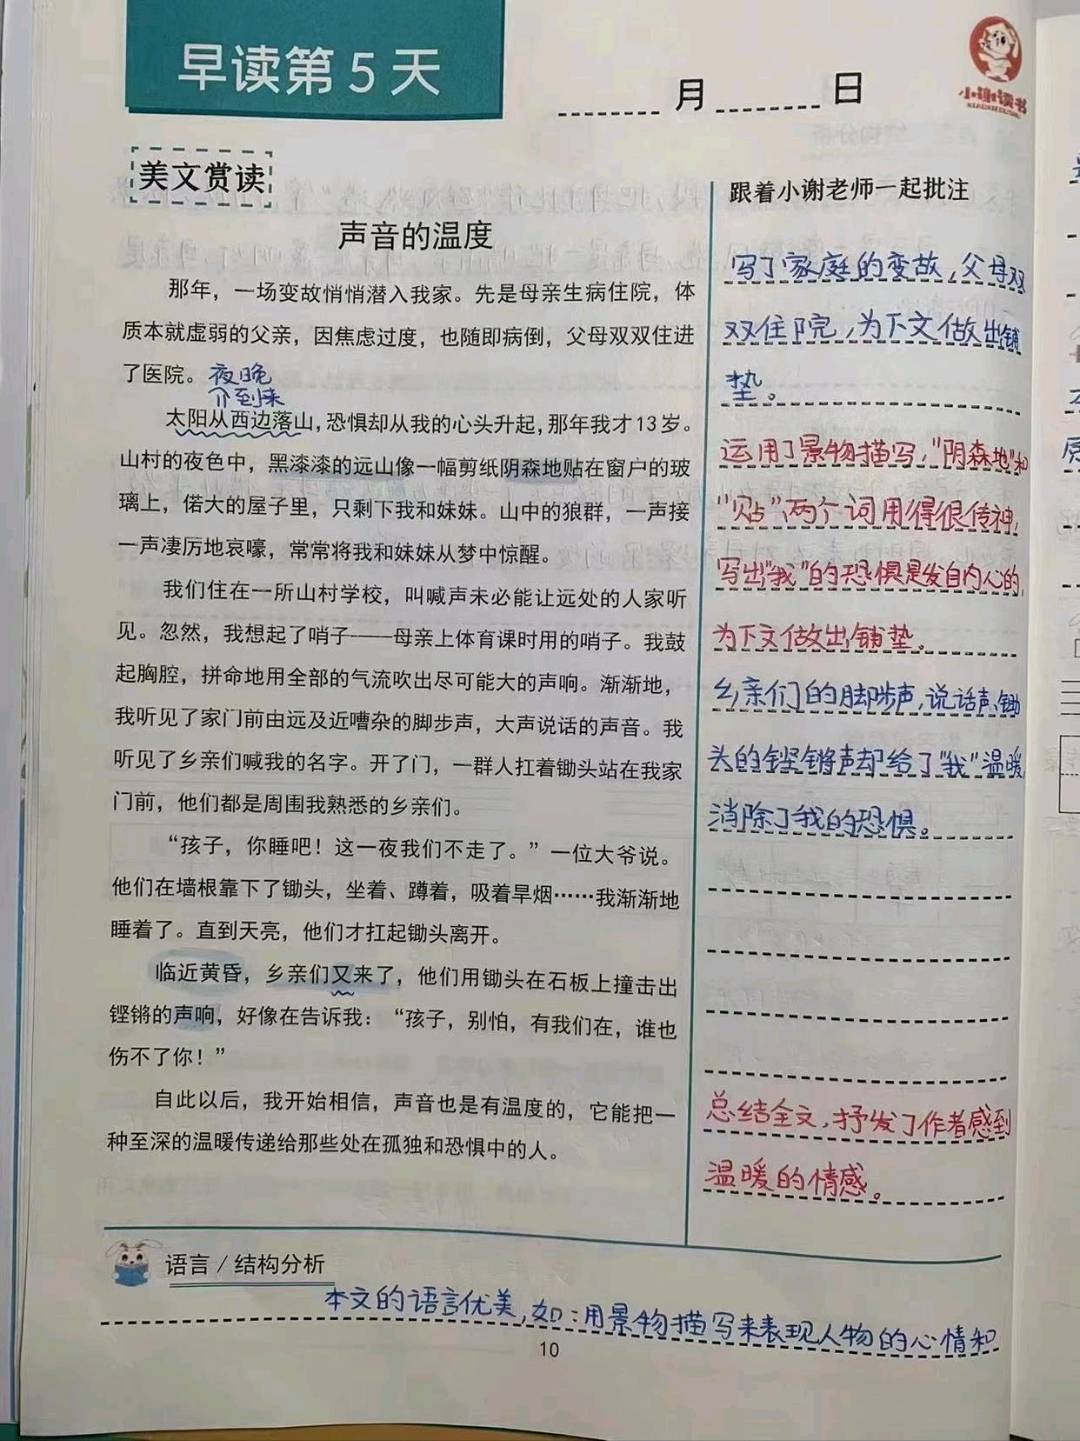 早读第5天
月 日
小谢读书
美文赏读
跟着小谢老师一起批注
声音的温度
那年，一场变故悄悄潜入我家。先是母亲生病住院，体
质本就虚弱的父亲，因焦虑过度，也随即病倒，父母双双住进
了医院。
夜晚
个到来
太阳从西边落山，恐惧却从我的心头升起，那年我才13岁。
山村的夜色中，黑漆漆的远山像一幅剪纸阴森地贴在窗户的玻
璃上，偌大的屋子里，只剩下我和妹妹。山中的狼群，一声接
一声凄厉地哀嚎，常常将我和妹妹从梦中惊醒。
我们住在一所山村学校，叫喊声未必能让远处的人家听
见。忽然，我想起了哨子——母亲上体育课时用的哨子。我鼓
起胸腔，拼命地用全部的气流吹出尽可能大的声响。渐渐地，
我听见了家门前由远及近嘈杂的脚步声，大声说话的声音。我
听见了乡亲们喊我的名字。开了门，一群人扛着锄头站在我家
门前，他们都是周围我熟悉的乡亲们。
“孩子，你睡吧！这一夜我们不走了。”一位大爷说。
他们在墙根靠下了锄头，坐着、蹲着，吸着旱烟……我渐渐地
睡着了。直到天亮，他们才扛起锄头离开。
临近黄昏，乡亲们又来了，他们用锄头在石板上撞击出
铿锵的声响，好像在告诉我：“孩子，别怕，有我们在，谁也
伤不了你！”
自此以后，我开始相信，声音也是有温度的，它能把一
种至深的温暖传递给那些处在孤独和恐惧中的人。
写了家庭的变故，父母双
双住院，为下文做出铺
垫。
运用了景物描写，“阴森地”和
“贴”两个词用得很传神，
写出“我”的恐惧是发自内心的，
为下文做出铺垫。
乡亲们的脚步声，说话声、锄
头的铿锵声却给了“我”温暖，
消除了我的恐惧。
总结全文，抒发了作者感到
温暖的情感。
语言/结构分析
本文的语言优美，如：用景物描写来表现人物的心情和
10